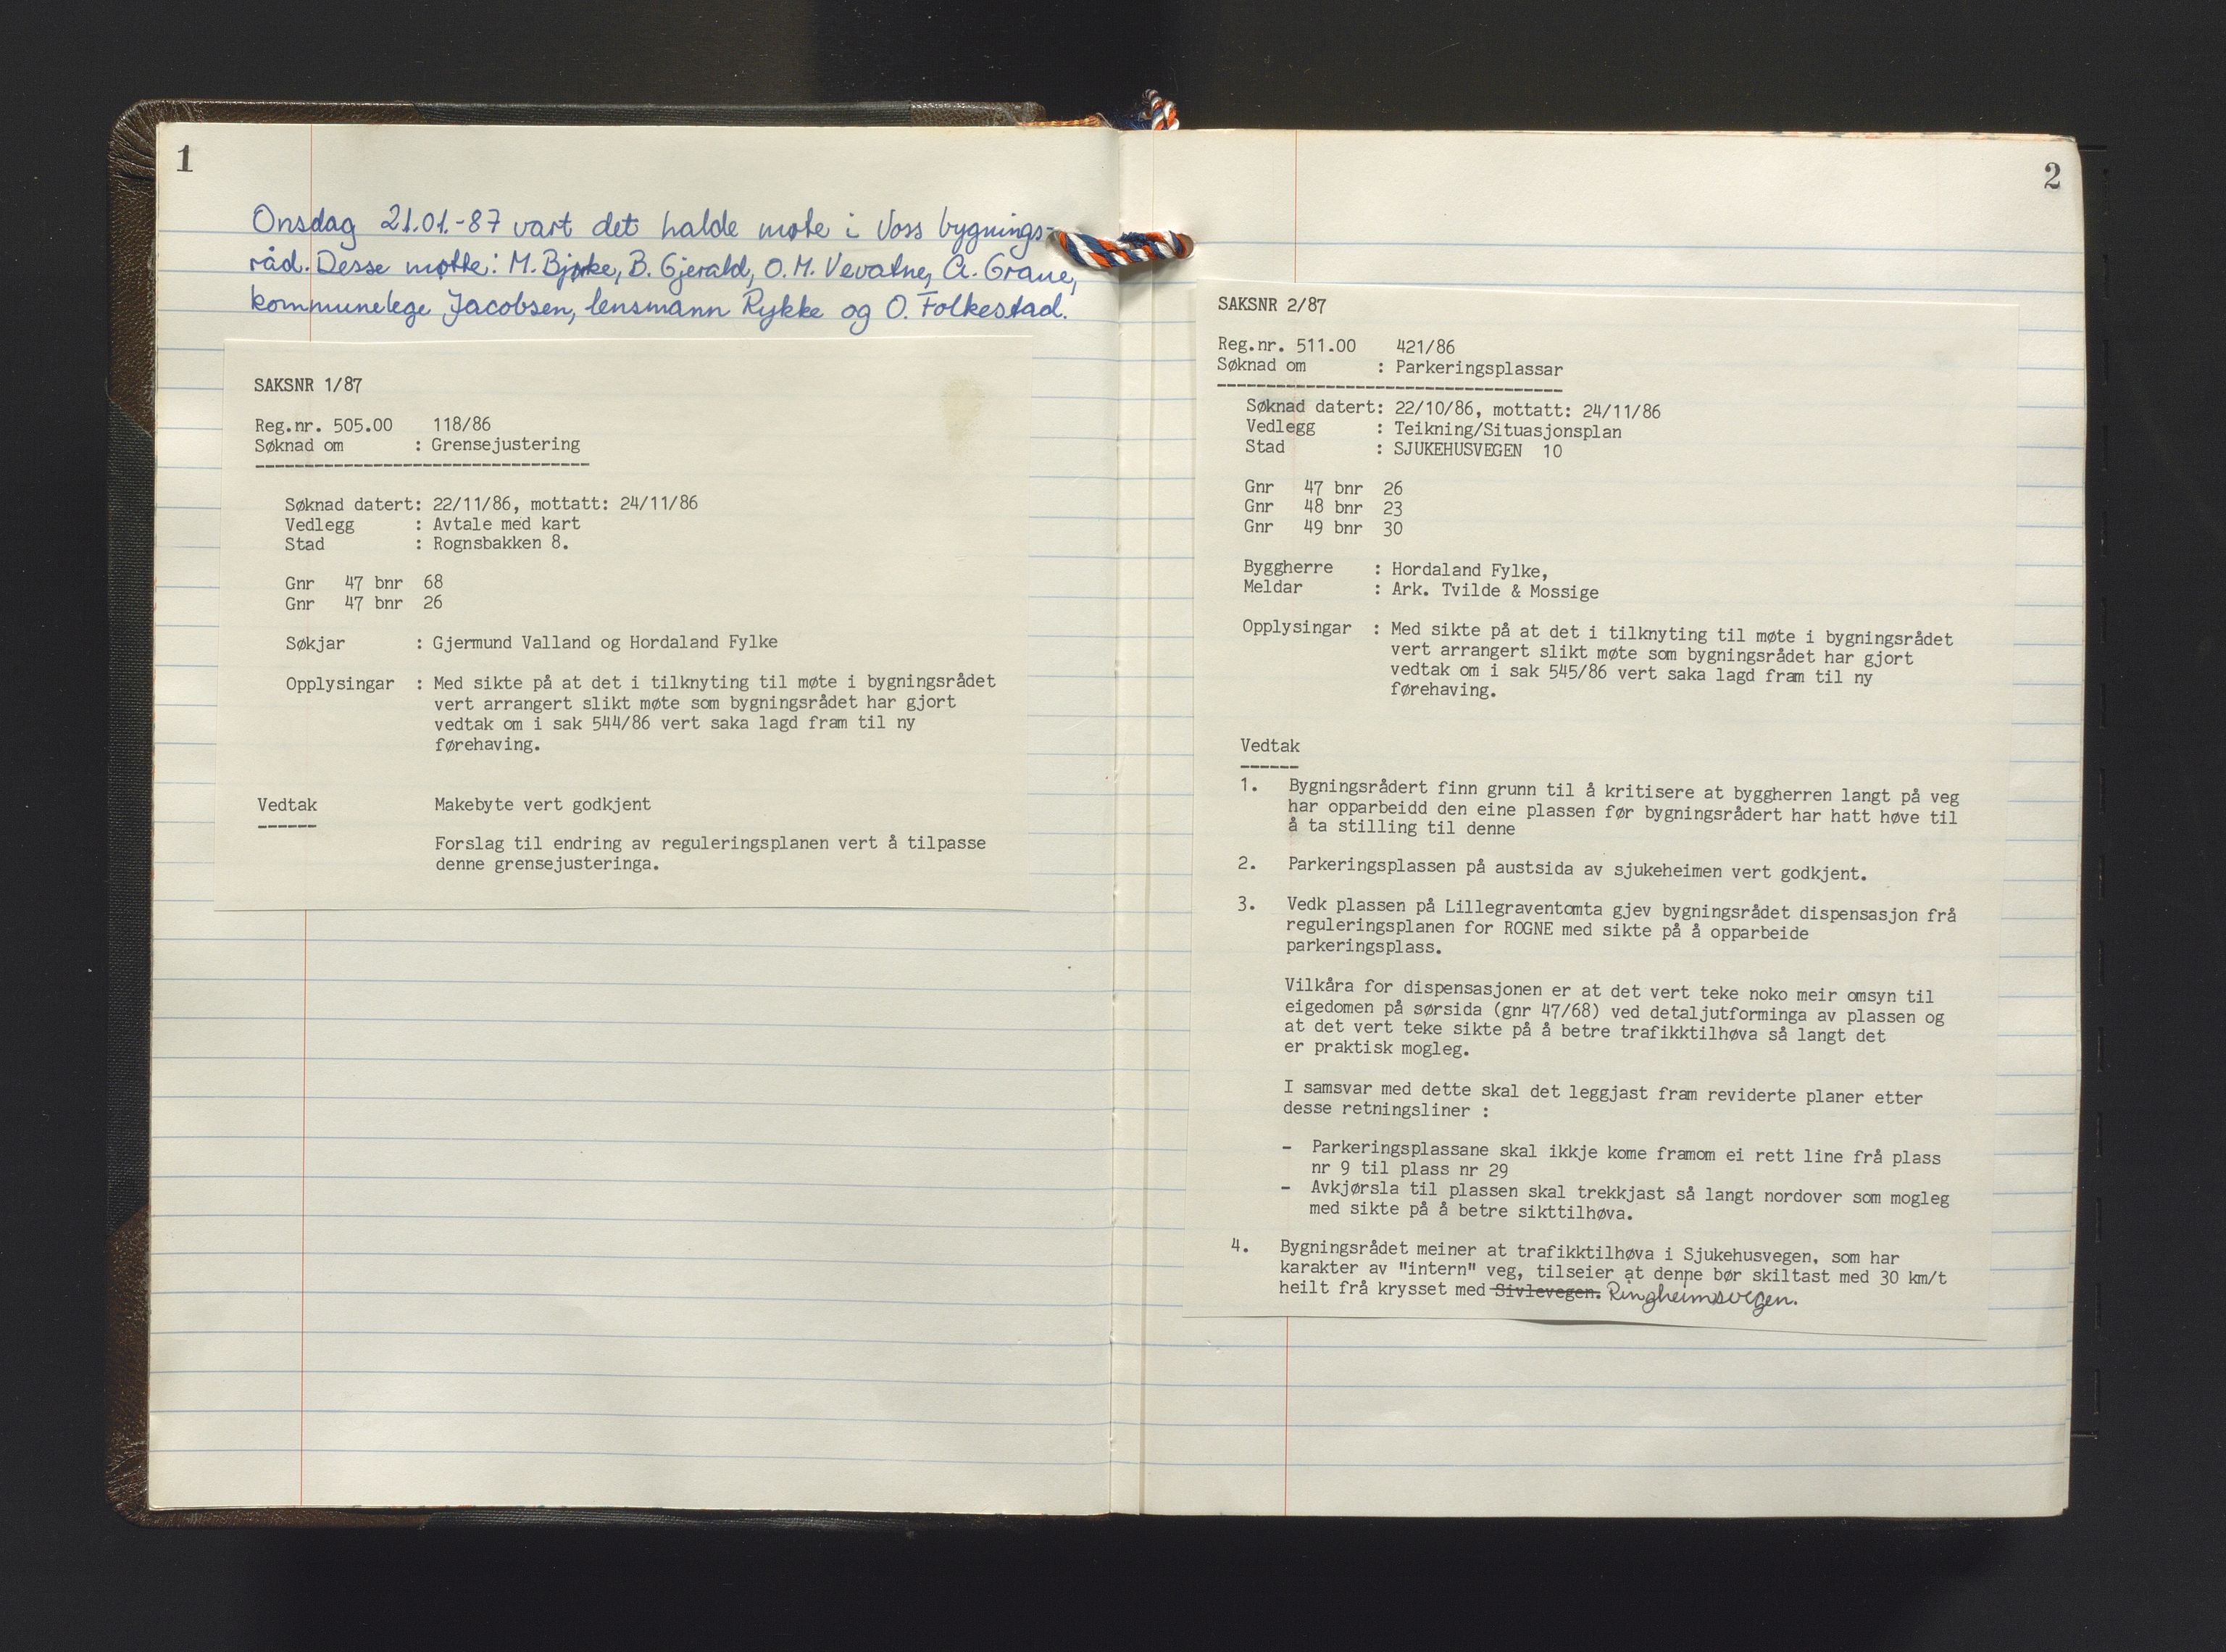 1
Onsdag 21.01.-87 vart det halde møte i Voss bygnings-
råd. Desse møtte: M. Bjørke, B. Gjerald, O.M. Vevatne, A. Graue,
kommunelege Jacobsen, lensmann Rykke og O. Folkestad.
SAKSNR 1/87
Reg.nr. 505.00 118/86
Søknad om : Grensejustering
Søknad datert: 22/11/86, mottatt: 24/11/86
Vedlegg : Avtale med kart
Stad : Rognsbakken 8.
Gnr 47 bnr 68
Gnr 47 bnr 26
Søkjar : Gjermund Valland og Hordaland Fylke
Opplysingar : Med sikte på at det i tilknyting til møte i bygningsrådet
vert arrangert slikt møte som bygningsrådet har gjort
vedtak om i sak 544/86 vert saka lagd fram til ny
førehaving.
Vedtak Makebyte vert godkjent
Forslag til endring av reguleringsplanen vert å tilpasse
denne grensejusteringa.
2
SAKSNR 2/87
Reg.nr. 511.00 421/86
Søknad om : Parkeringsplassar
Søknad datert: 22/10/86, mottatt: 24/11/86
Vedlegg : Teikning/Situasjonsplan
Stad : SJUKEHUSVEGEN 10
Gnr 47 bnr 26
Gnr 48 bnr 23
Gnr 49 bnr 30
Byggherre : Hordaland Fylke,
Meldar : Ark. Tvilde & Mossige
Opplysingar : Med sikte på at det i tilknyting til møte i bygningsrådet
vert arrangert slikt møte som bygningsrådet har gjort
vedtak om i sak 545/86 vert saka lagd fram til ny
førehaving.
Vedtak
1. Bygningsrådert finn grunn til å kritisere at byggherren langt på veg
har opparbeidd den eine plassen før bygningsrådert har hatt høve til
å ta stilling til denne
2. Parkeringsplassen på austsida av sjukeheimen vert godkjent.
3. Vedk plassen på Lillegraventomta gjev bygningsrådet dispensasjon frå
reguleringsplanen for ROGNE med sikte på å opparbeide
parkeringsplass.
Vilkåra for dispensasjonen er at det vert teke noko meir omsyn til
eigedomen på sørsida (gnr 47/68) ved detaljutforminga av plassen og
at det vert teke sikte på å betre trafikktilhøva så langt det
er praktisk mogleg.
I samsvar med dette skal det leggjast fram reviderte planer etter
desse retningsliner :
- Parkeringsplassane skal ikkje kome framom ei rett line frå plass
nr 9 til plass nr 29
- Avkjørsla til plassen skal trekkjast så langt nordover som mogleg
med sikte på å betre sikttilhøva.
4. Bygningsrådet meiner at trafikktilhøva i Sjukehusvegen, som har
karakter av "intern" veg, tilseier at denne bør skiltast med 30 km/t
heilt frå krysset med Sivlevegen. Ringheimsvegen.